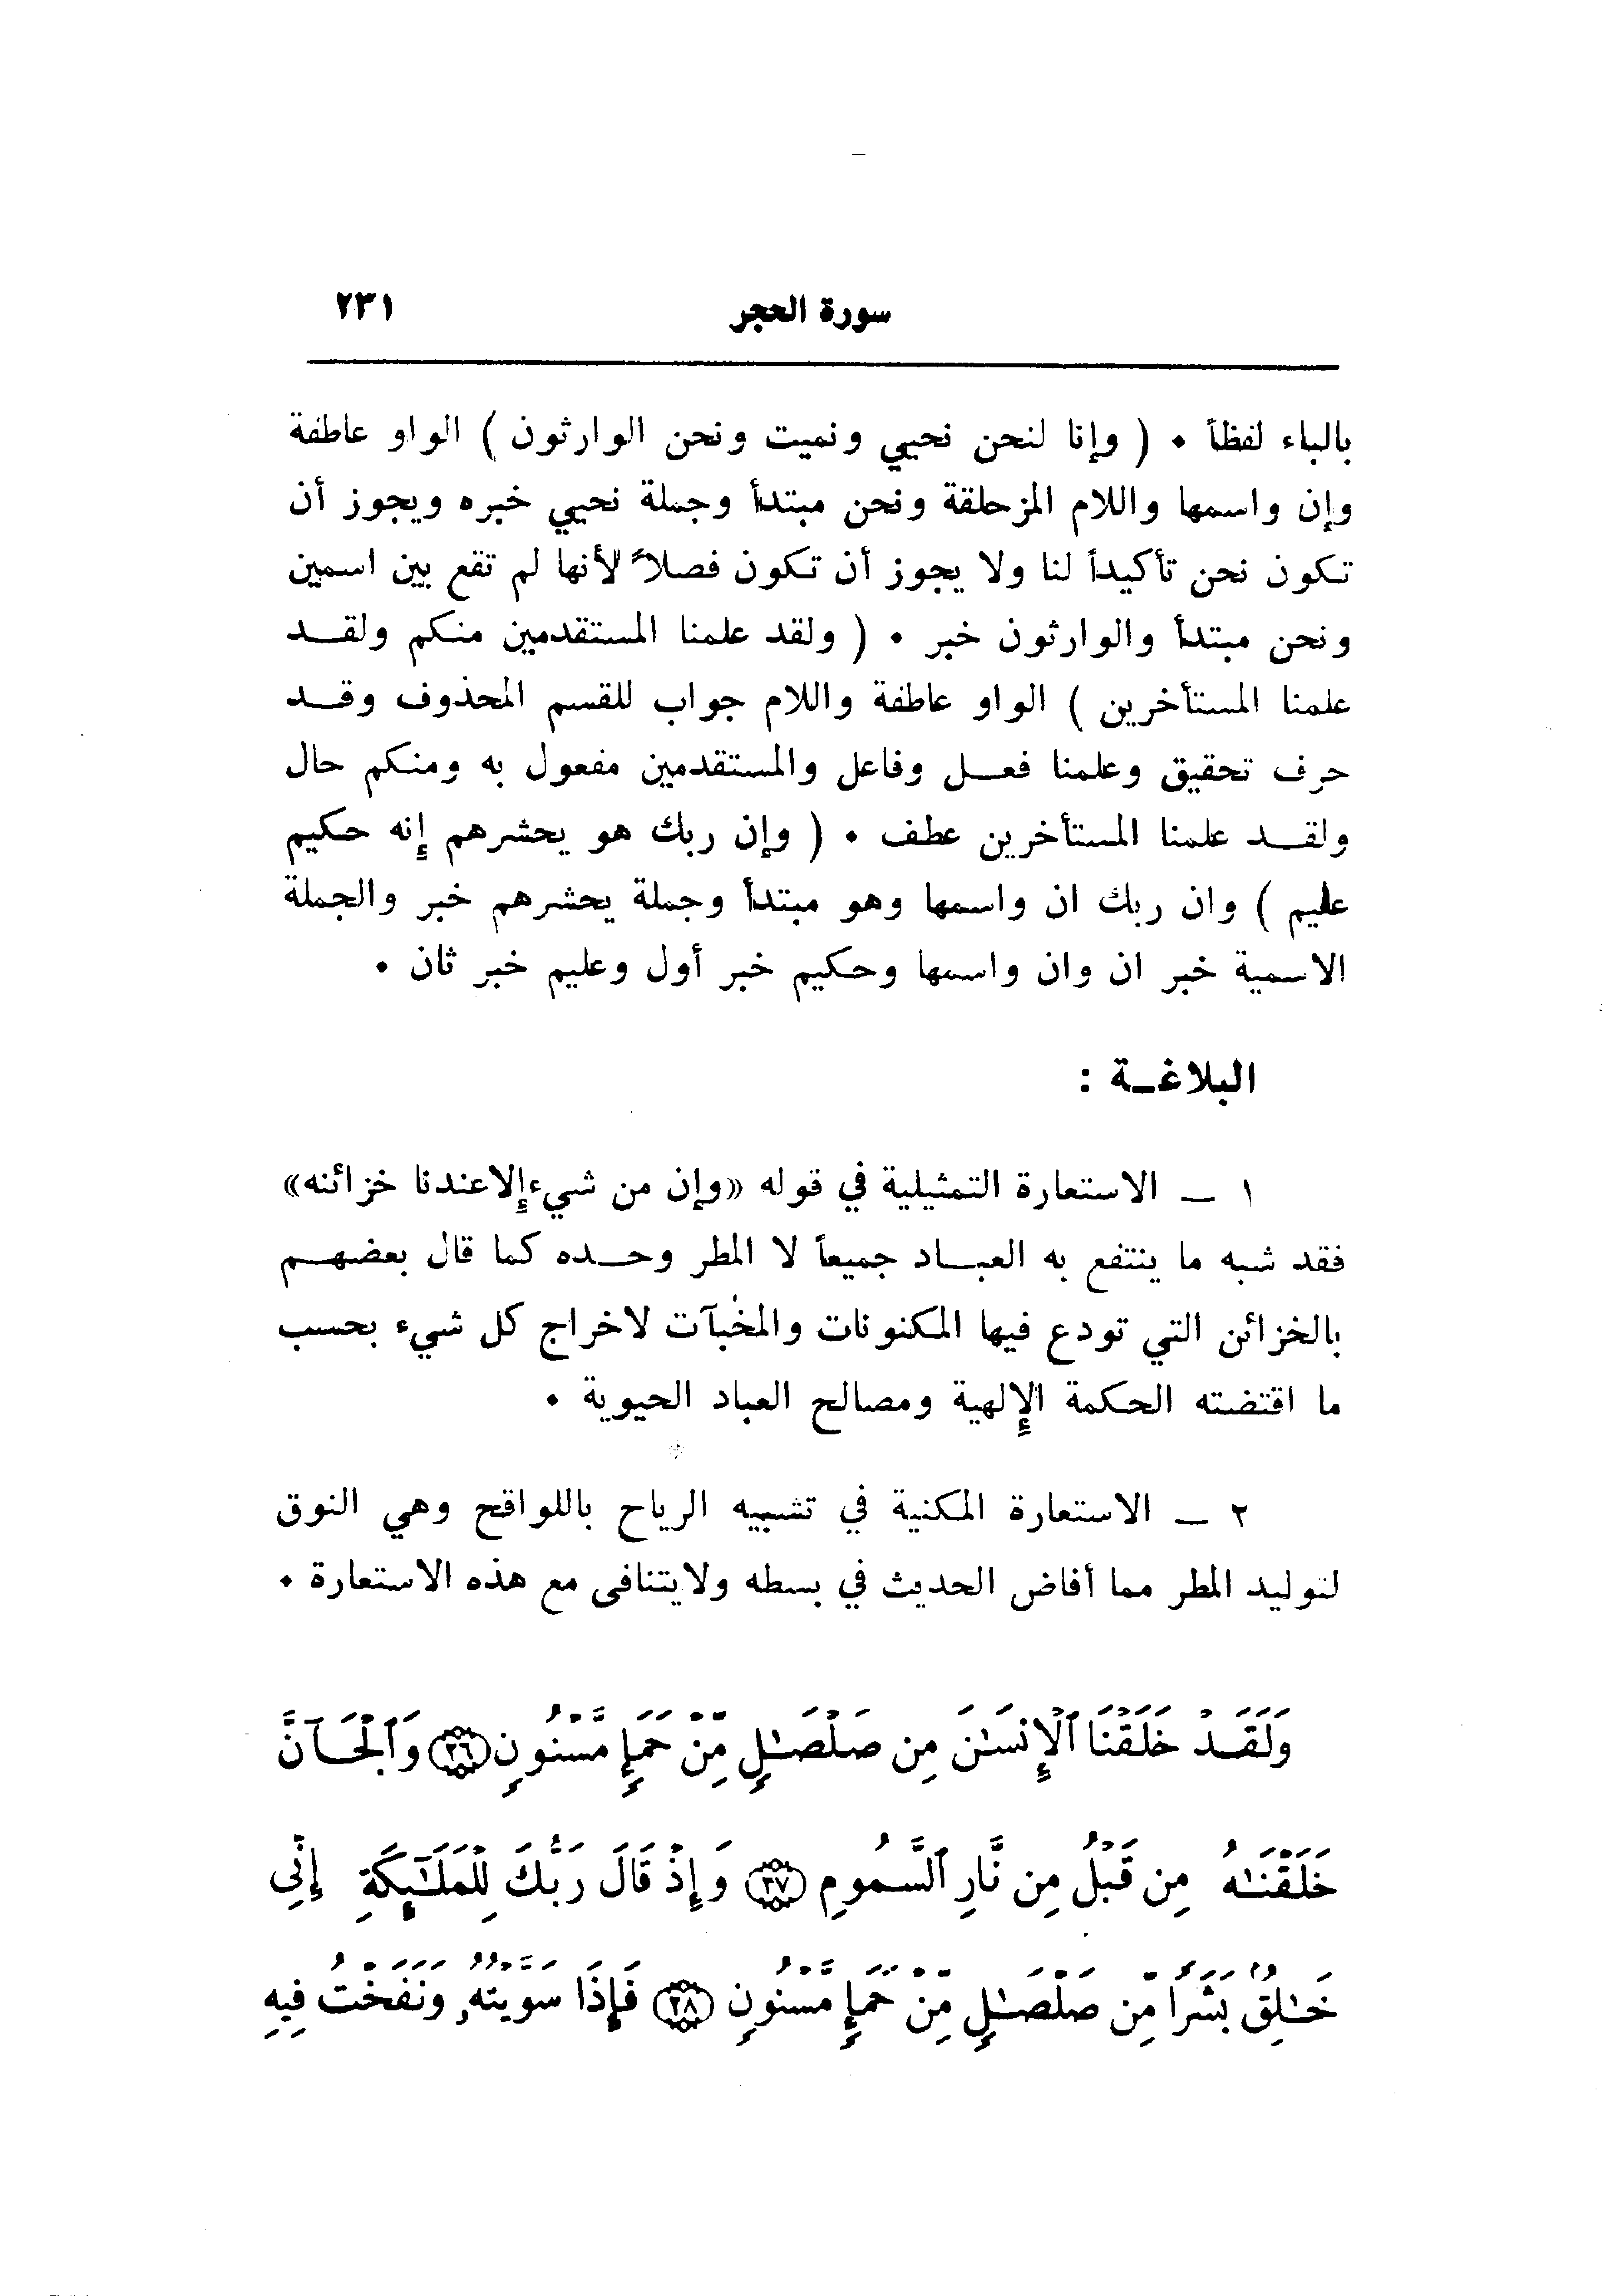 سورة الحجر ٢٣١
بالباء لفظاً • ( وإنا لنحن نحيي ونميت ونحن الوارثون ) الواو عاطفة
وإن واسمها واللام المزحلقة ونحن مبتدأ وجملة نحيي خبره ويجوز أن
تكون نحن تأكيداً لنا ولا يجوز أن تكون فصلاً لأنها لم تقع بين اسمين
ونحن مبتدأ والوارثون خبر • ( ولقد علمنا المستقدمين منكم ولقد
علمنا المستأخرين ) الواو عاطفة واللام جواب للقسم المحذوف وقد
حرف تحقيق وعلمنا فعل وفاعل والمستقدمين مفعول به ومنكم حال
ولقد علمنا المستأخرين عطف • ( وإن ربك هو يحشرهم إنه حكيم
عليم ) وان ربك ان واسمها وهو مبتدأ وجملة يحشرهم خبر والجملة
الاسمية خبر ان وان واسمها وحكيم خبر أول وعليم خبر ثان •
البلاغة :
١ – الاستعارة التمثيلية في قوله «وإن من شيء إلا عندنا خزائنه»
فقد شبه ما ينتفع به العباد جميعاً لا المطر وحده كما قال بعضهم
بالخزائن التي تودع فيها المكنونات والمخبآت لاخراج كل شيء بحسب
ما اقتضته الحكمة الإلهية ومصالح العباد الحيوية •
٢ – الاستعارة المكنية في تشبيه الرياح باللواقح وهي النوق
لتوليد المطر مما أفاض الحديث في بسطه ولا يتنافى مع هذه الاستعارة •
وَلَقَدْ خَلَقْنَا ٱلْإِنسَٰنَ مِن صَلْصَٰلٍ مِّنْ حَمَإٍ مَّسْنُونٍ ٢٦ وَٱلْجَآنَّ
خَلَقْنَٰهُ مِن قَبْلُ مِن نَّارِ ٱلسَّمُومِ ٢٧ وَإِذْ قَالَ رَبُّكَ لِلْمَلَٰٓئِكَةِ إِنِّى
خَٰلِقٌۢ بَشَرًا مِّن صَلْصَٰلٍ مِّنْ حَمَإٍ مَّسْنُونٍ ٢٨ فَإِذَا سَوَّيْتُهُۥ وَنَفَخْتُ فِيهِ